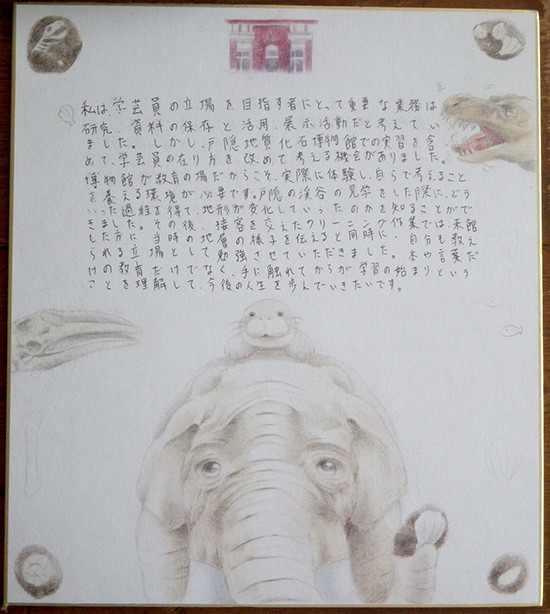 私は、学芸員の立場を目指す者にとって重要な業務は
研究、資料の保存と活用、展示活動だと考えてい
ました。しかし、戸隠地質化石博物館での実習を含
めて、学芸員の在り方を改めて考える機会がありました。
博物館が教育の場だからこそ、実際に体験し、自らで考えること
を養える環境が必要です。戸隠の渓谷の見学をした際に、どう
いった過程を得て、地形が変化していったのかを知ることがで
きました。その後、接客を交えたクリーニング作業では、来館
した方に当時の地層の様子を伝えると同時に、自分も教え
られる立場として勉強させていただきました。本や言葉だ
けの教育だけでなく、手に触れてからが学習の始まりという
ことを理解して、今後の人生を歩んでいきたいです。